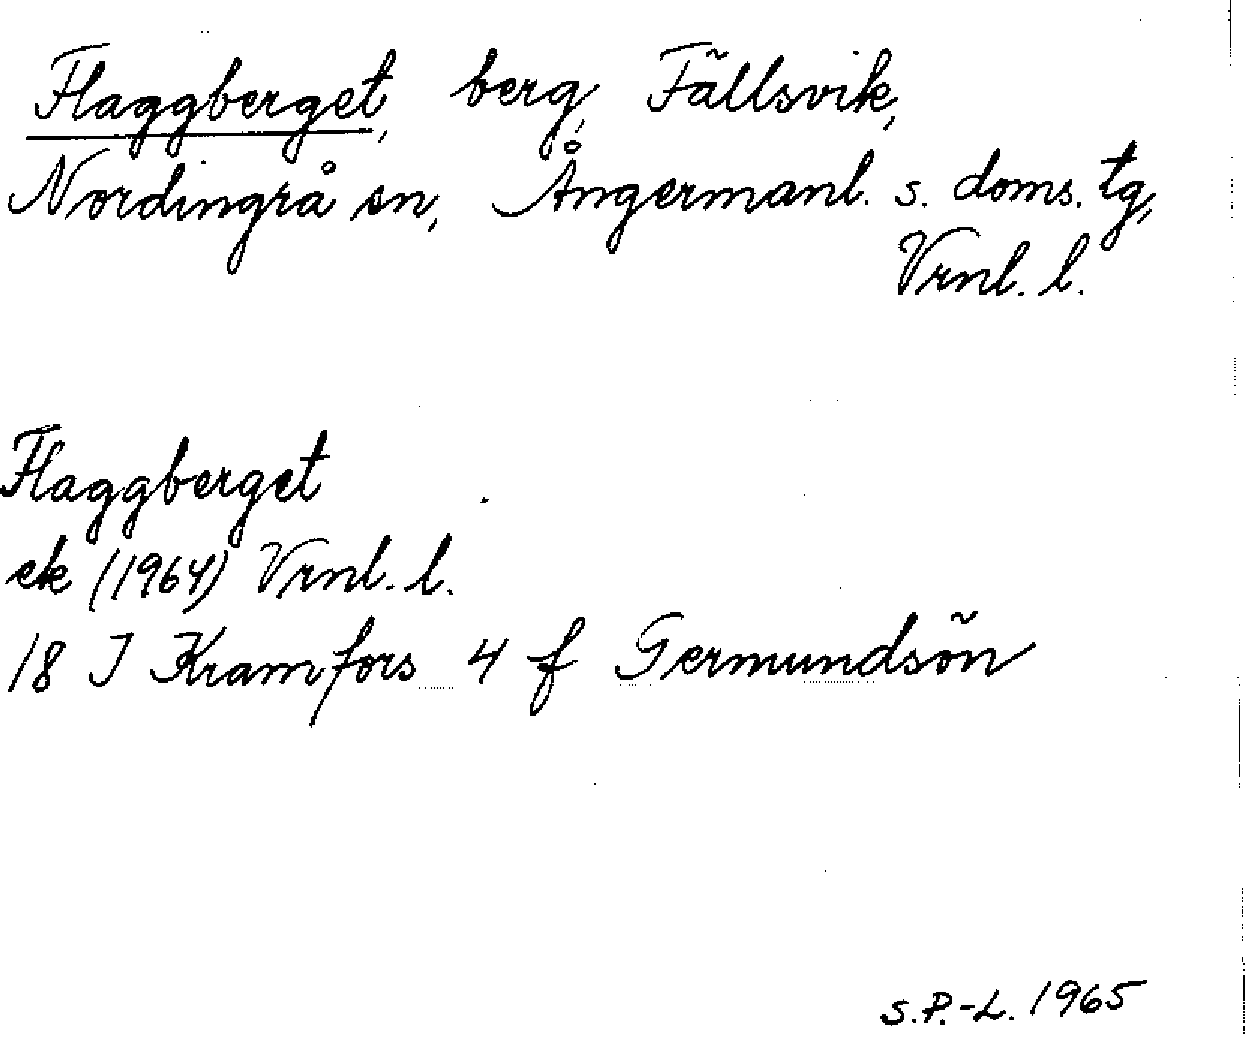 Flaggberget, berg, Fällsvik,
Nordingrå sn, Ångermanl. s. doms. tg,
Vrnl. l.
Flaggberget
ek (1964) Vrnl. l.
18 J Kramfors 4 f Germundsön
S.P.-L. 1965